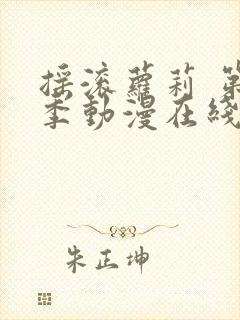 摇滚蘿莉 第
季動漫在綫
朱正坤